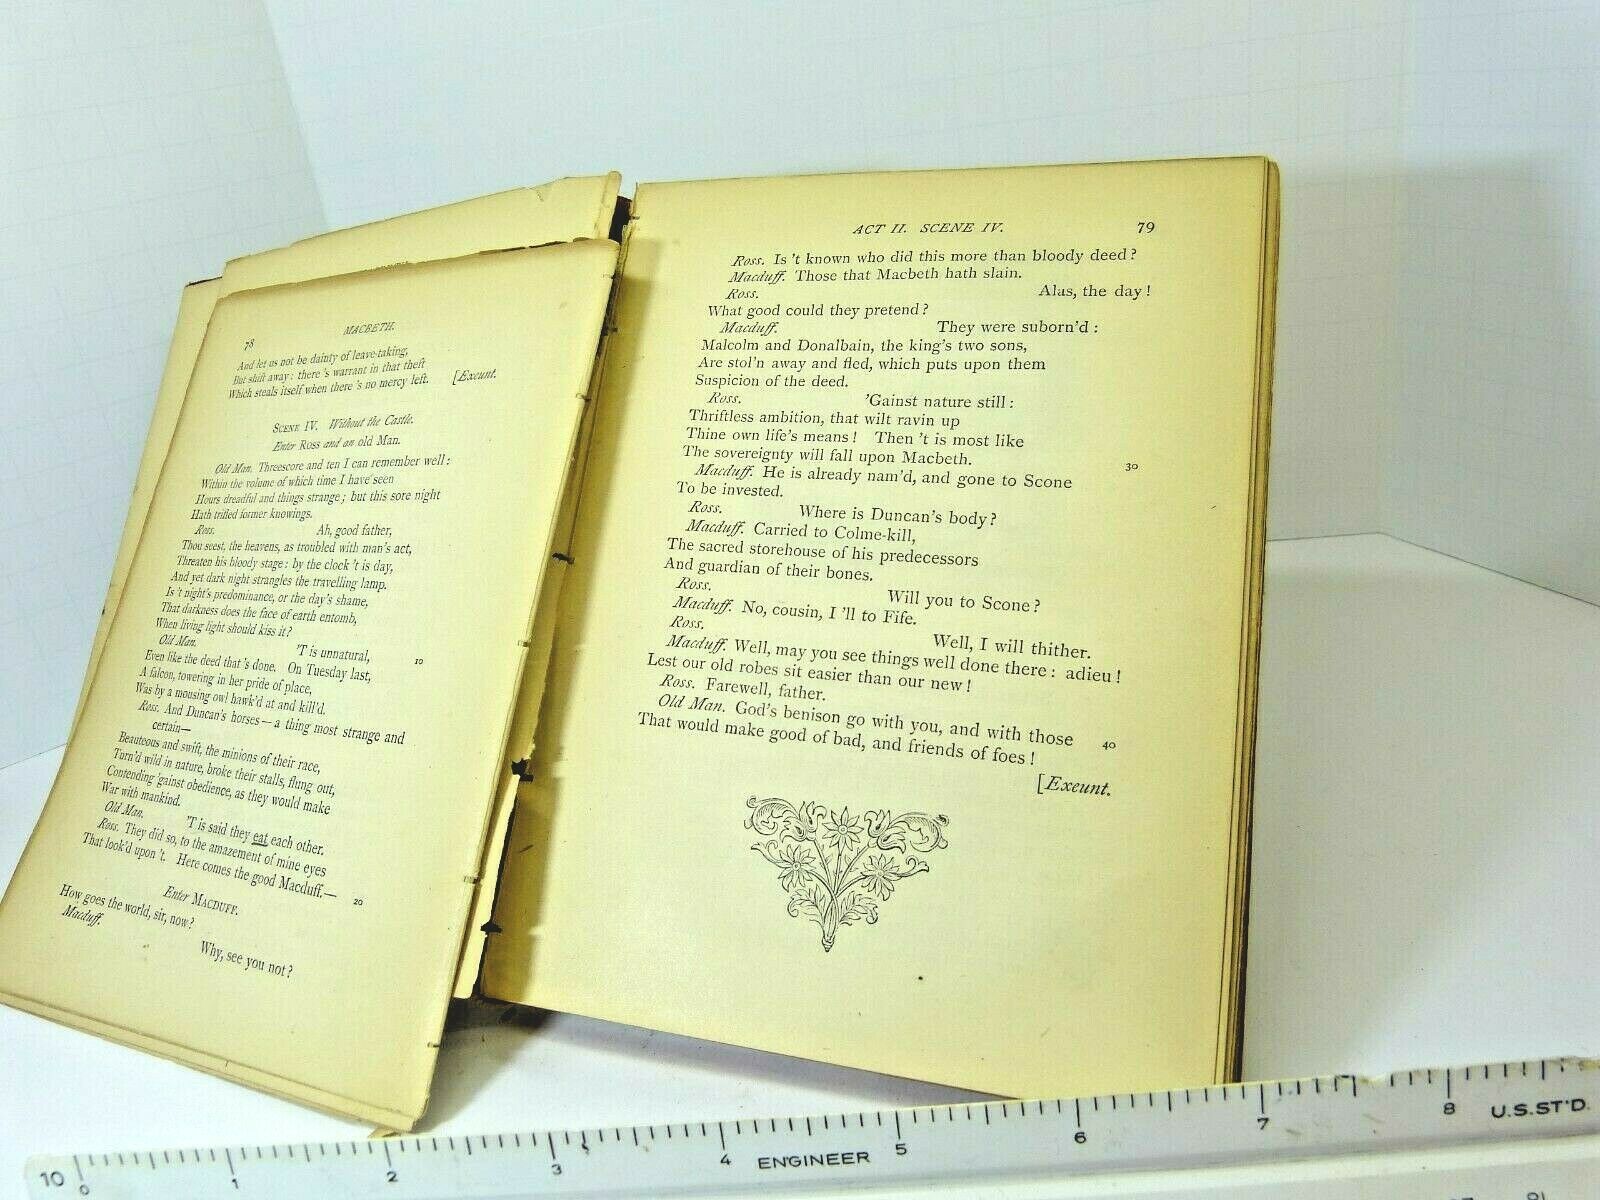 MACBETH.
78
And let us not be dainty of leave-taking,
But shift away: there 's warrant in that theft
Which steals itself when there 's no mercy left. [Exeunt.
SCENE IV. Without the Castle.
Enter ROSS and an old Man.
Old Man. Threescore and ten I can remember well:
Within the volume of which time I have seen
Hours dreadful and things strange; but this sore night
Hath trifled former knowings.
Ross. Ah, good father,
Thou seest, the heavens, as troubled with man's act,
Threaten his bloody stage: by the clock 't is day,
And yet dark night strangles the travelling lamp.
Is 't night's predominance, or the day's shame,
That darkness does the face of earth entomb,
When living light should kiss it?
Old Man. 'T is unnatural, 10
Even like the deed that 's done. On Tuesday last,
A falcon, towering in her pride of place,
Was by a mousing owl hawk'd at and kill'd.
Ross. And Duncan's horses—a thing most strange and
certain—
Beauteous and swift, the minions of their race,
Turn'd wild in nature, broke their stalls, flung out,
Contending 'gainst obedience, as they would make
War with mankind.
Old Man. 'T is said they eat each other.
Ross. They did so, to the amazement of mine eyes
That look'd upon 't. Here comes the good Macduff.— 20
Enter MACDUFF.
How goes the world, sir, now?
Macduff. Why, see you not?
ACT II. SCENE IV. 79
Ross. Is 't known who did this more than bloody deed?
Macduff. Those that Macbeth hath slain.
Ross. Alas, the day!
What good could they pretend?
Macduff. They were suborn'd:
Malcolm and Donalbain, the king's two sons,
Are stol'n away and fled, which puts upon them
Suspicion of the deed.
Ross. 'Gainst nature still:
Thriftless ambition, that wilt ravin up
Thine own life's means! Then 't is most like
The sovereignty will fall upon Macbeth. 30
Macduff. He is already nam'd, and gone to Scone
To be invested.
Ross. Where is Duncan's body?
Macduff. Carried to Colme-kill,
The sacred storehouse of his predecessors
And guardian of their bones.
Ross. Will you to Scone?
Macduff. No, cousin, I 'll to Fife.
Ross. Well, I will thither.
Macduff. Well, may you see things well done there: adieu!
Lest our old robes sit easier than our new!
Ross. Farewell, father.
Old Man. God's benison go with you, and with those 40
That would make good of bad, and friends of foes!
[Exeunt.
10 0 1 2 3 4 ENGINEER 5 6 7 8 U.S.ST'D.